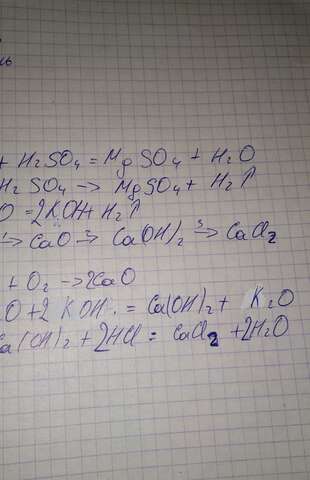 ь
+ H₂SO₄ = MgSO₄ + H₂O
H₂SO₄ -> MgSO₄ + H₂↑
O = 2KOH + H₂↑
1-> CaO 2-> Ca(OH)₂ 3-> CaCl₂
+ O₂ -> 2CaO
O + 2KOH = Ca(OH)₂ + K₂O
Ca(OH)₂ + 2HCl = CaCl₂ + 2H₂O